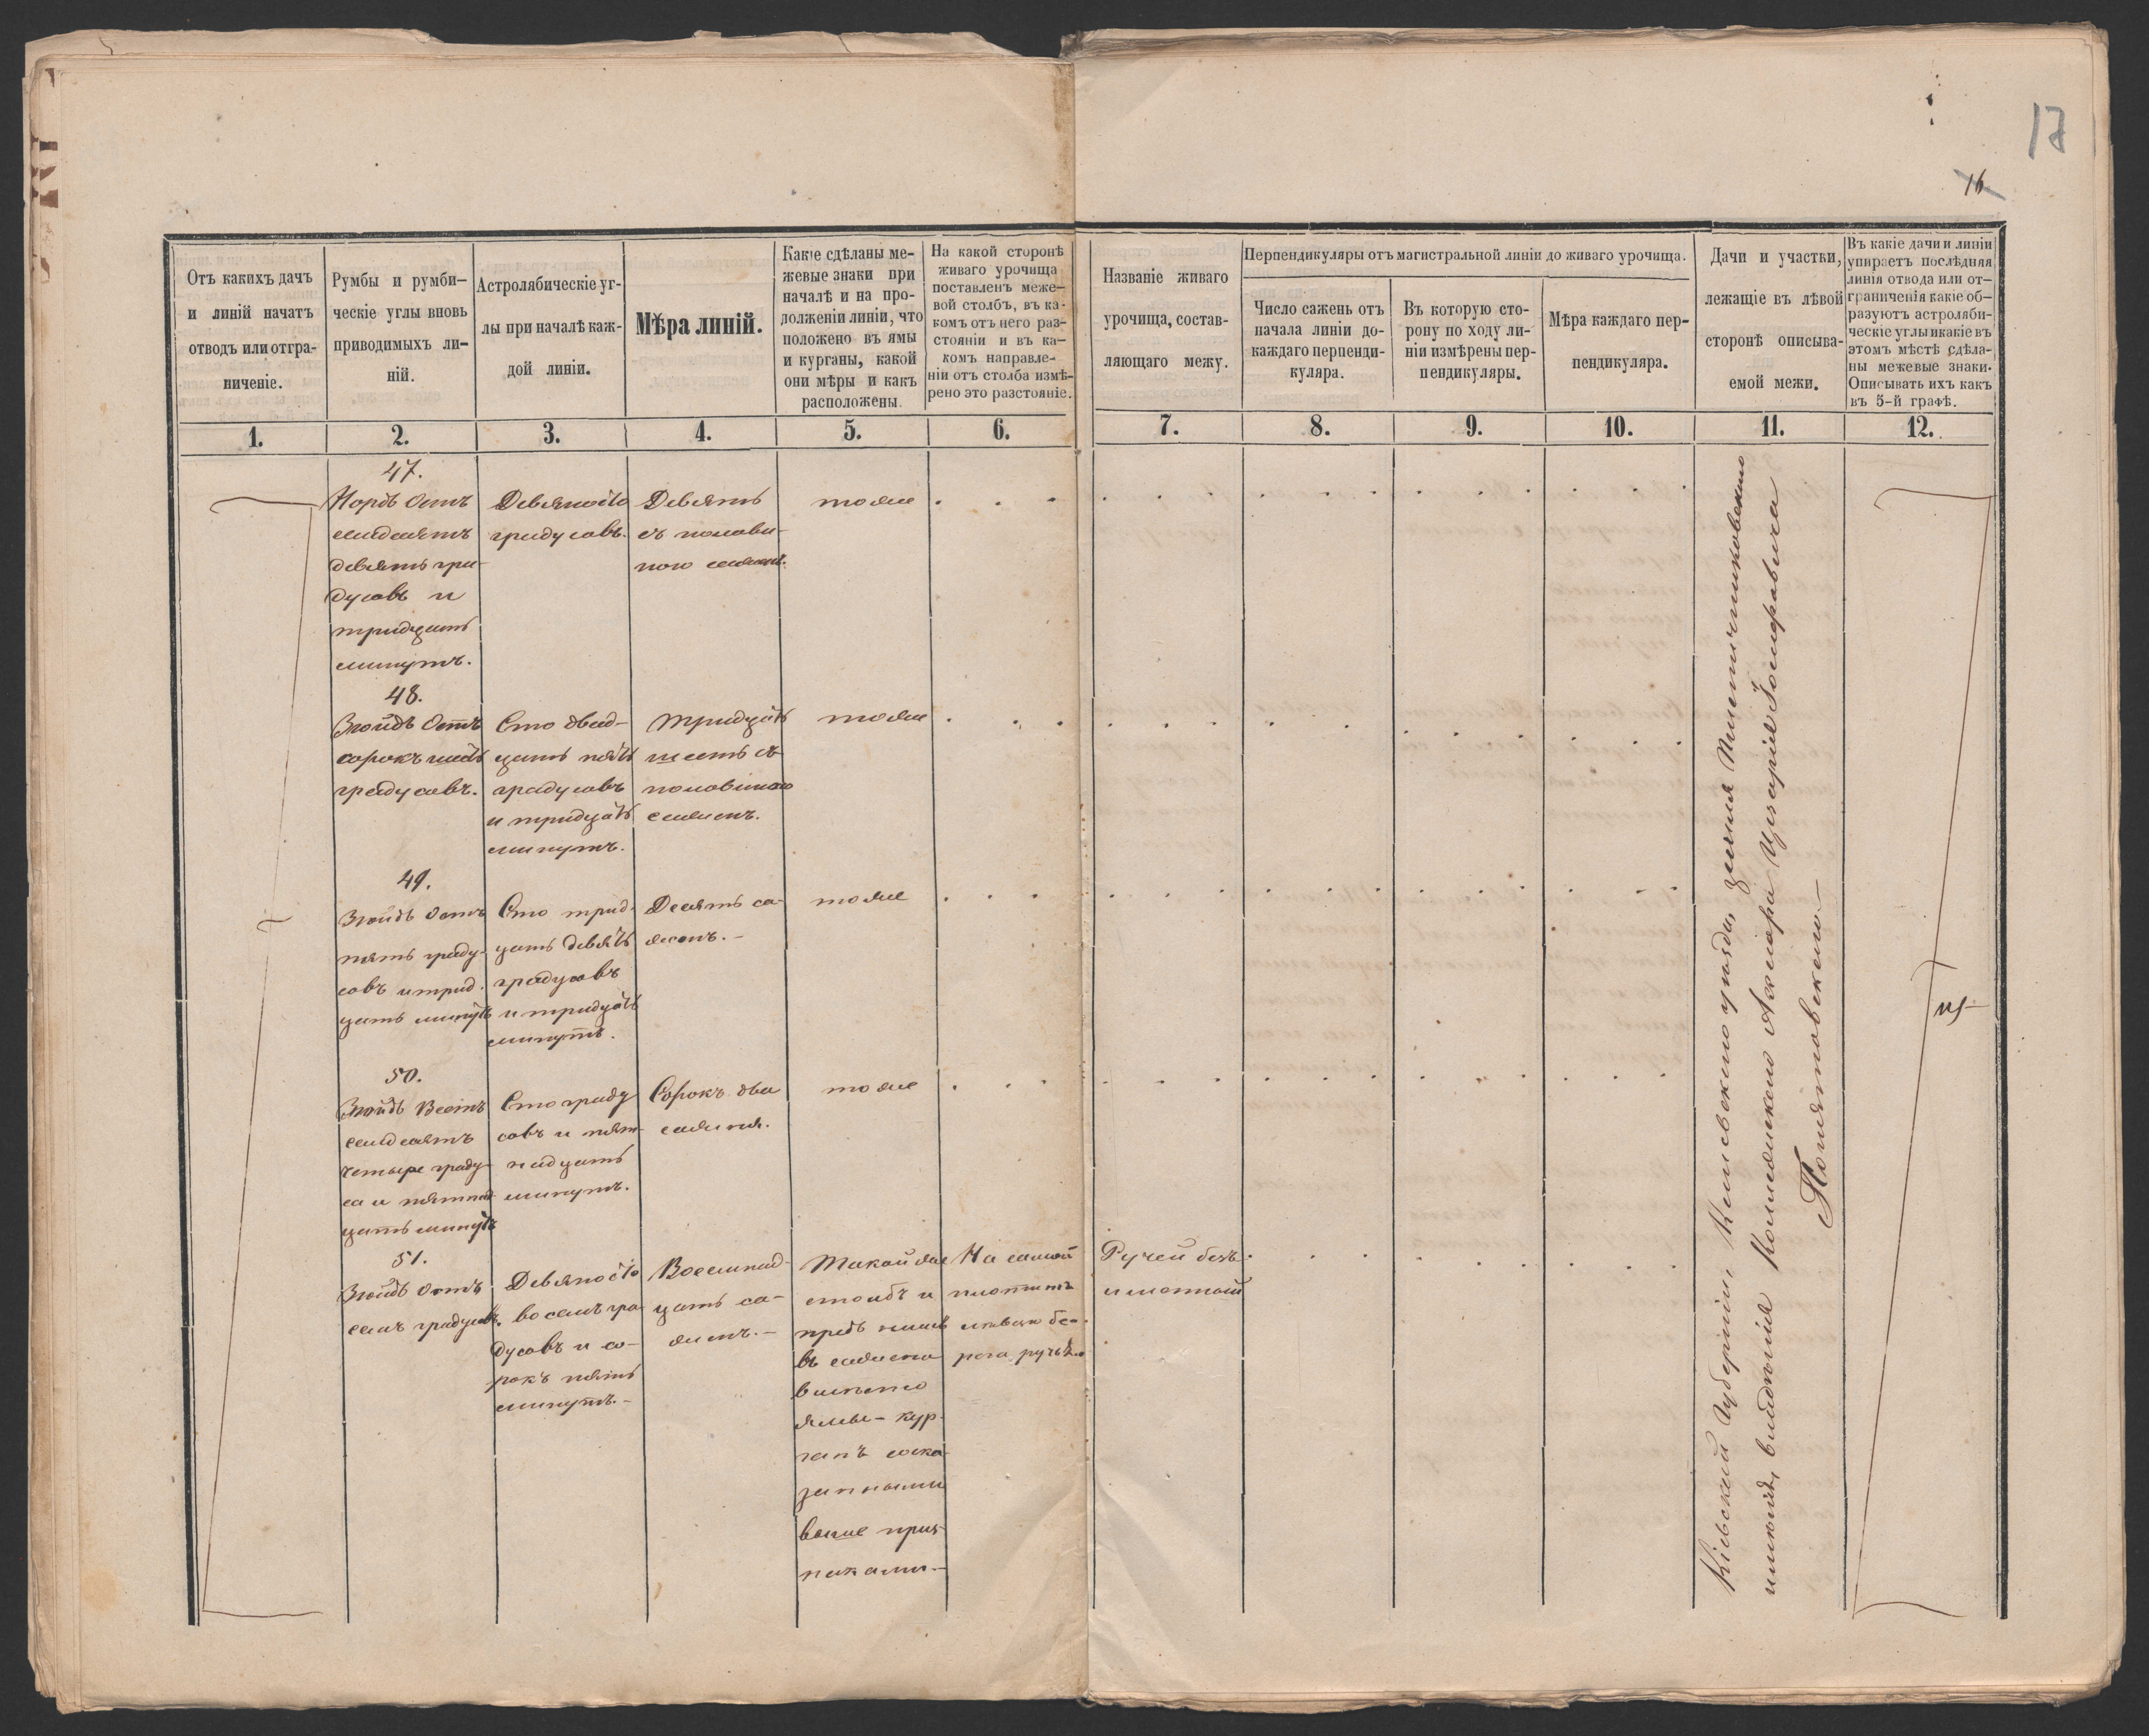 17
16
Отъ какихъ дачъ
и линій начатъ
отводъ или отгра-
ниченіе.
Румбы и румби-
ческіе углы вновь
приводимыхъ ли-
ній.
Астролябическіе уг-
лы при началѣ каж-
дой линіи.
Мѣра линій.
Какіе сдѣланы ме-
жевые знаки при
началѣ и на про-
долженіи линіи, что
положено въ ямы
и курганы, какой
они мѣры и какъ
расположены.
На какой сторонѣ
живаго урочища
поставленъ меже-
вой столбъ, въ ка-
комъ отъ него раз-
стояніи и въ ка-
комъ направле-
ніи отъ столба измѣ-
рено это разстояніе.
Названіе живаго
урочища, состав-
ляющаго межу.
Перпендикуляры отъ магистральной линіи до живаго урочища.
Число сажень отъ
начала линіи до
каждаго перпенди-
куляра.
Въ которую сто-
рону по ходу ли-
ніи измѣрены пер-
пендикуляры.
Мѣра каждаго пер-
пендикуляра.
Дачи и участки,
лежащіе въ лѣвой
сторонѣ описыва-
емой межи.
Въ какіе дачи и линіи
упираетъ послѣдняя
линія отвода или от-
граниченія какіе об-
разуютъ астроляби-
ческіе углы и какіе въ
этомъ мѣстѣ сдѣла-
ны межевые знаки.
Описывать ихъ какъ
въ 5-й графѣ.
1.
2.
3.
4.
5.
6.
7.
8.
9.
10.
11.
12.
47.
Нордъ Остъ
семдесятъ
девять гра-
дусовъ и
тридцать
минутъ.
Девяносто
градусовъ.
Девять
съ полови-
ною сажень.
тоже
48.
Зюйдъ Остъ
сорокъ шесть
градусовъ.
Сто двад-
цать пять
градусовъ
и тридцать
минутъ.
Тридцать
шесть съ
половиною
сажень.
тоже
49.
Зюйдъ Остъ
пять граду-
совъ и трид-
цать минутъ
Сто трид-
цать девять
градусовъ
и тридцать
минутъ.
Десять са-
жень.-
тоже
50.
Зюйдъ Вестъ
семдесятъ
четыре граду-
са и пятнад-
цать минутъ
Сто граду
совъ и пят-
надцать
минутъ.
Сорокъ два
сажня.
тоже
51.
Зюйдъ Остъ
семь градусовъ.
Девяносто
восемъ гра-
дусовъ и со-
рокъ пять
минутъ.-
Восемнад-
цать са-
жень.-
Такой же
столбъ и
предъ нимъ
въ сажень
вмѣсто
ямы-кур-
ганъ сска-
занными
выше приз-
наками.-
На самой
плотинѣ
лѣваго бе-
рега ручья
Ручей безъ-
именный
Кіевской Губерніи, Кіевскаго уѣзда, земля Пилипчиковскаго
имѣнія, владѣнія Коллежскаго Ассесора Цезарія Іосифовича
Понятовскаго-